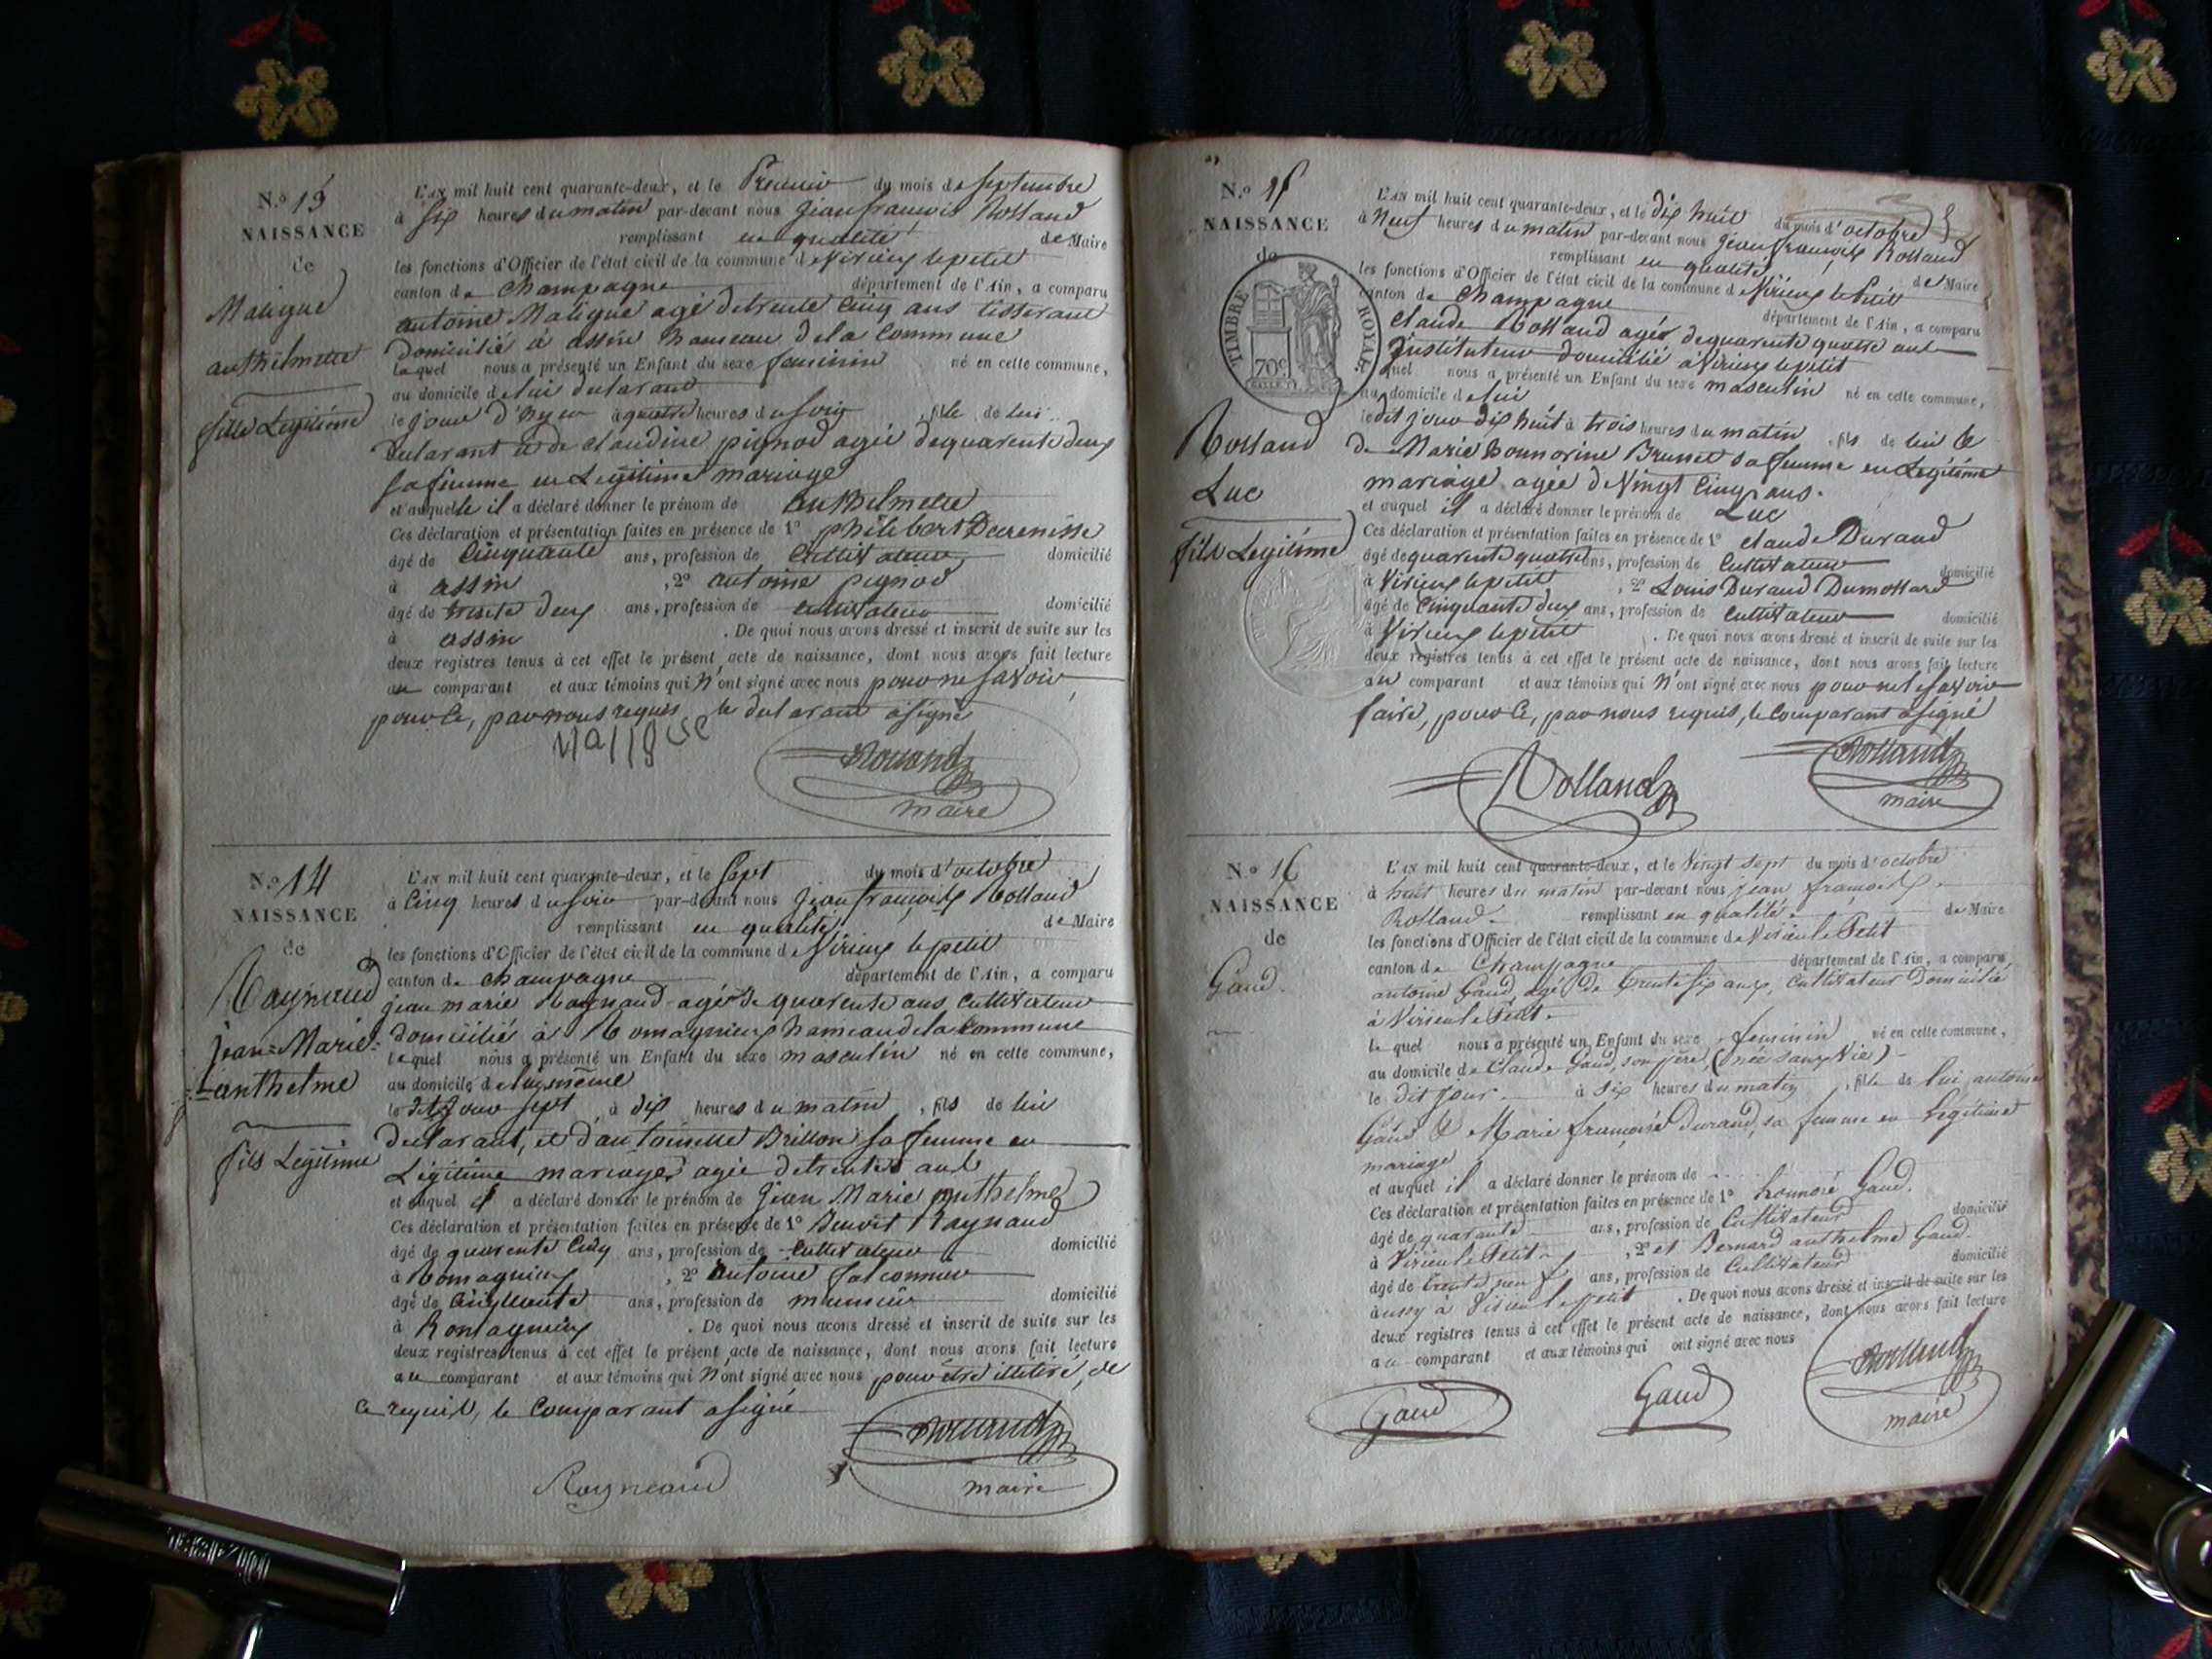 N.º 13
NAISSANCE
de
Maligue
anthelmette
fille Légitime
L'AN mil huit cent quarante-deux, et le Premier du mois de septembre
à six heures du matin par-devant nous Jean françois Rolland
remplissant en qualité de Maire
les fonctions d'Officier de l'état civil de la commune de Virieux le petit
canton de Champagne département de l'Ain, a comparu
antoine Maligue agé de trente cinq ans tisserand
domicilié à assin hameau de la Commune
lequel nous a présenté un Enfant du sexe feminin né en cette commune,
au domicile de lui déclarant
le jour d'hyer à quatre heures du soir, fille de lui
declarant et de claudine pignod agée de quarente deux
sa femme en Légitime mariage
et auquelle il a déclaré donner le prénom de anthelmette
Ces déclaration et présentation faites en présence de 1º philibert
âgé de Cinquante ans, profession de Cultivateur domicilié
à assin, 2º antoine pignod
âgé de trente deux ans, profession de cultivateur domicilié
à assin. De quoi nous avons dressé et inscrit de suite sur les
deux registres tenus à cet effet le présent acte de naissance, dont nous avons fait lecture
au comparant et aux témoins qui N'ont signé avec nous pour ne savoir
pour ce, par nous requis le declarant a signé
Rolland
maire
N.º 14
NAISSANCE
de
Raynaud
jean-Marie-
anthelme
fils Légitime
L'AN mil huit cent quarante-deux, et le Sept du mois d'octobre
à Cinq heures du soir par-devant nous Jean françois Rolland
remplissant en qualité de Maire
les fonctions d'Officier de l'état civil de la commune de Virieux le petit
canton de Champagne département de l'Ain, a comparu
jean marie Raynaud agé de quarente ans Cultivateur
domicilié à Romagnieux hameau de la Commune
lequel nous a présenté un Enfant du sexe masculin né en cette commune,
au domicile de luy même
le dit jour sept, à dix heures du matin, fils de lui
declarant, et d'antoinette Brillon sa femme en
Légitime mariage agée de trente ans
et auquel il a déclaré donner le prénom de Jean Marie anthelme
Ces déclaration et présentation faites en présence de 1º Benoit Raynaud
âgé de quarente Cinq ans, profession de Cultivateur domicilié
à Romagnieux, 2º antoine falconnier
âgé de Cinquante ans, profession de domicilié
à Romagnieux. De quoi nous avons dressé et inscrit de suite sur les
deux registres tenus à cet effet le présent acte de naissance, dont nous avons fait lecture
au comparant et aux témoins qui N'ont signé avec nous pour être illetiré, de
ce requis, le Comparant a signé
Rolland
Raynaud maire
N.º 15
NAISSANCE
de
TIMBRE ROYAL
70c
Rolland
Luc
fils Légitime
L'AN mil huit cent quarante-deux, et le dix huit du mois d'octobre
à Neuf heures du matin par-devant nous Jean françois Rolland
remplissant en qualité de Maire
les fonctions d'Officier de l'état civil de la commune de Virieux le Petit
canton de Champagne département de l'Ain, a comparu
Claude Rolland agé de quarente quatre ans
Instituteur domicilié à Virieux le petit
quel nous a présenté un Enfant du sexe masculin né en cette commune,
au domicile de lui
le dit jour dix huit à trois heures du matin, fils de lui &
de Marie honnorine Brunet sa femme en Légitime
mariage agée de Vingt Cinq ans.
et auquel il a déclaré donner le prénom de Luc
Ces déclaration et présentation faites en présence de 1º claude Durand
âgé de quarente quatre ans, profession de Cultivateur domicilié
à Virieux le petit, 2º Louis Durand Dumollard
âgé de Cinquante deux ans, profession de Cultivateur domicilié
à Virieux le petit. De quoi nous avons dressé et inscrit de suite sur les
deux registres tenus à cet effet le présent acte de naissance, dont nous avons fait lecture
au comparant et aux témoins qui N'ont signé avec nous pour ne le savoir
faire, pour ce, par nous requis, le Comparant a signé
Rolland Rolland
maire
N.º 16
NAISSANCE
de
Gaud.
L'AN mil huit cent quarante-deux, et le Vingt sept du mois d'octobre
à huit heures du matin par-devant nous jean françois
Rolland remplissant en qualité de Maire
les fonctions d'Officier de l'état civil de la commune de Virieu le Petit
canton de Champagne département de l'Ain, a comparu
antoine Gaud, agé de trente six ans, Cultivateur Domicilié
à Virieu le Petit
lequel nous a présenté un Enfant du sexe feminin né en cette commune,
au domicile de Claude Gaud, son père, (née sans Vie)
le dit jour à six heures du matin, fille de lui antoine
Gaud & Marie françoise Durand, sa femme en Légitime
mariage
et auquel il a déclaré donner le prénom de
Ces déclaration et présentation faites en présence de 1º honnoré Gaud.
âgé de quarante ans, profession de Cultivateur domicilié
à Virieu le Petit, 2º et Bernard anthelme Gaud.
âgé de trente ans, profession de Cultivateur domicilié
aussy à Virieu le petit. De quoi nous avons dressé et inscrit de suite sur les
deux registres tenus à cet effet le présent acte de naissance, dont nous avons fait lecture
au comparant et aux témoins qui ont signé avec nous
Gaud Gaud Rolland
maire